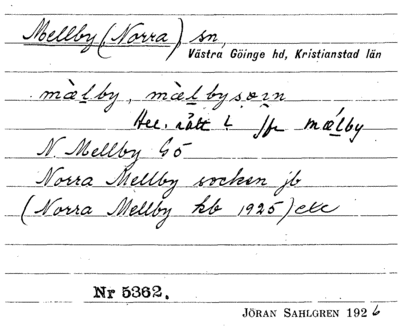 Mellby (Norra) sn,
Västra Göinge hd, Kristianstad län
mæ̀lby, mæ̀lbysoꝛn
Acc. rätt? Jfr mǽlby
N. Mellby G5
Norra Mellby socken jb
(Norra Mellby kb 1925) etc
Nr 5362.
JÖRAN SAHLGREN 1926